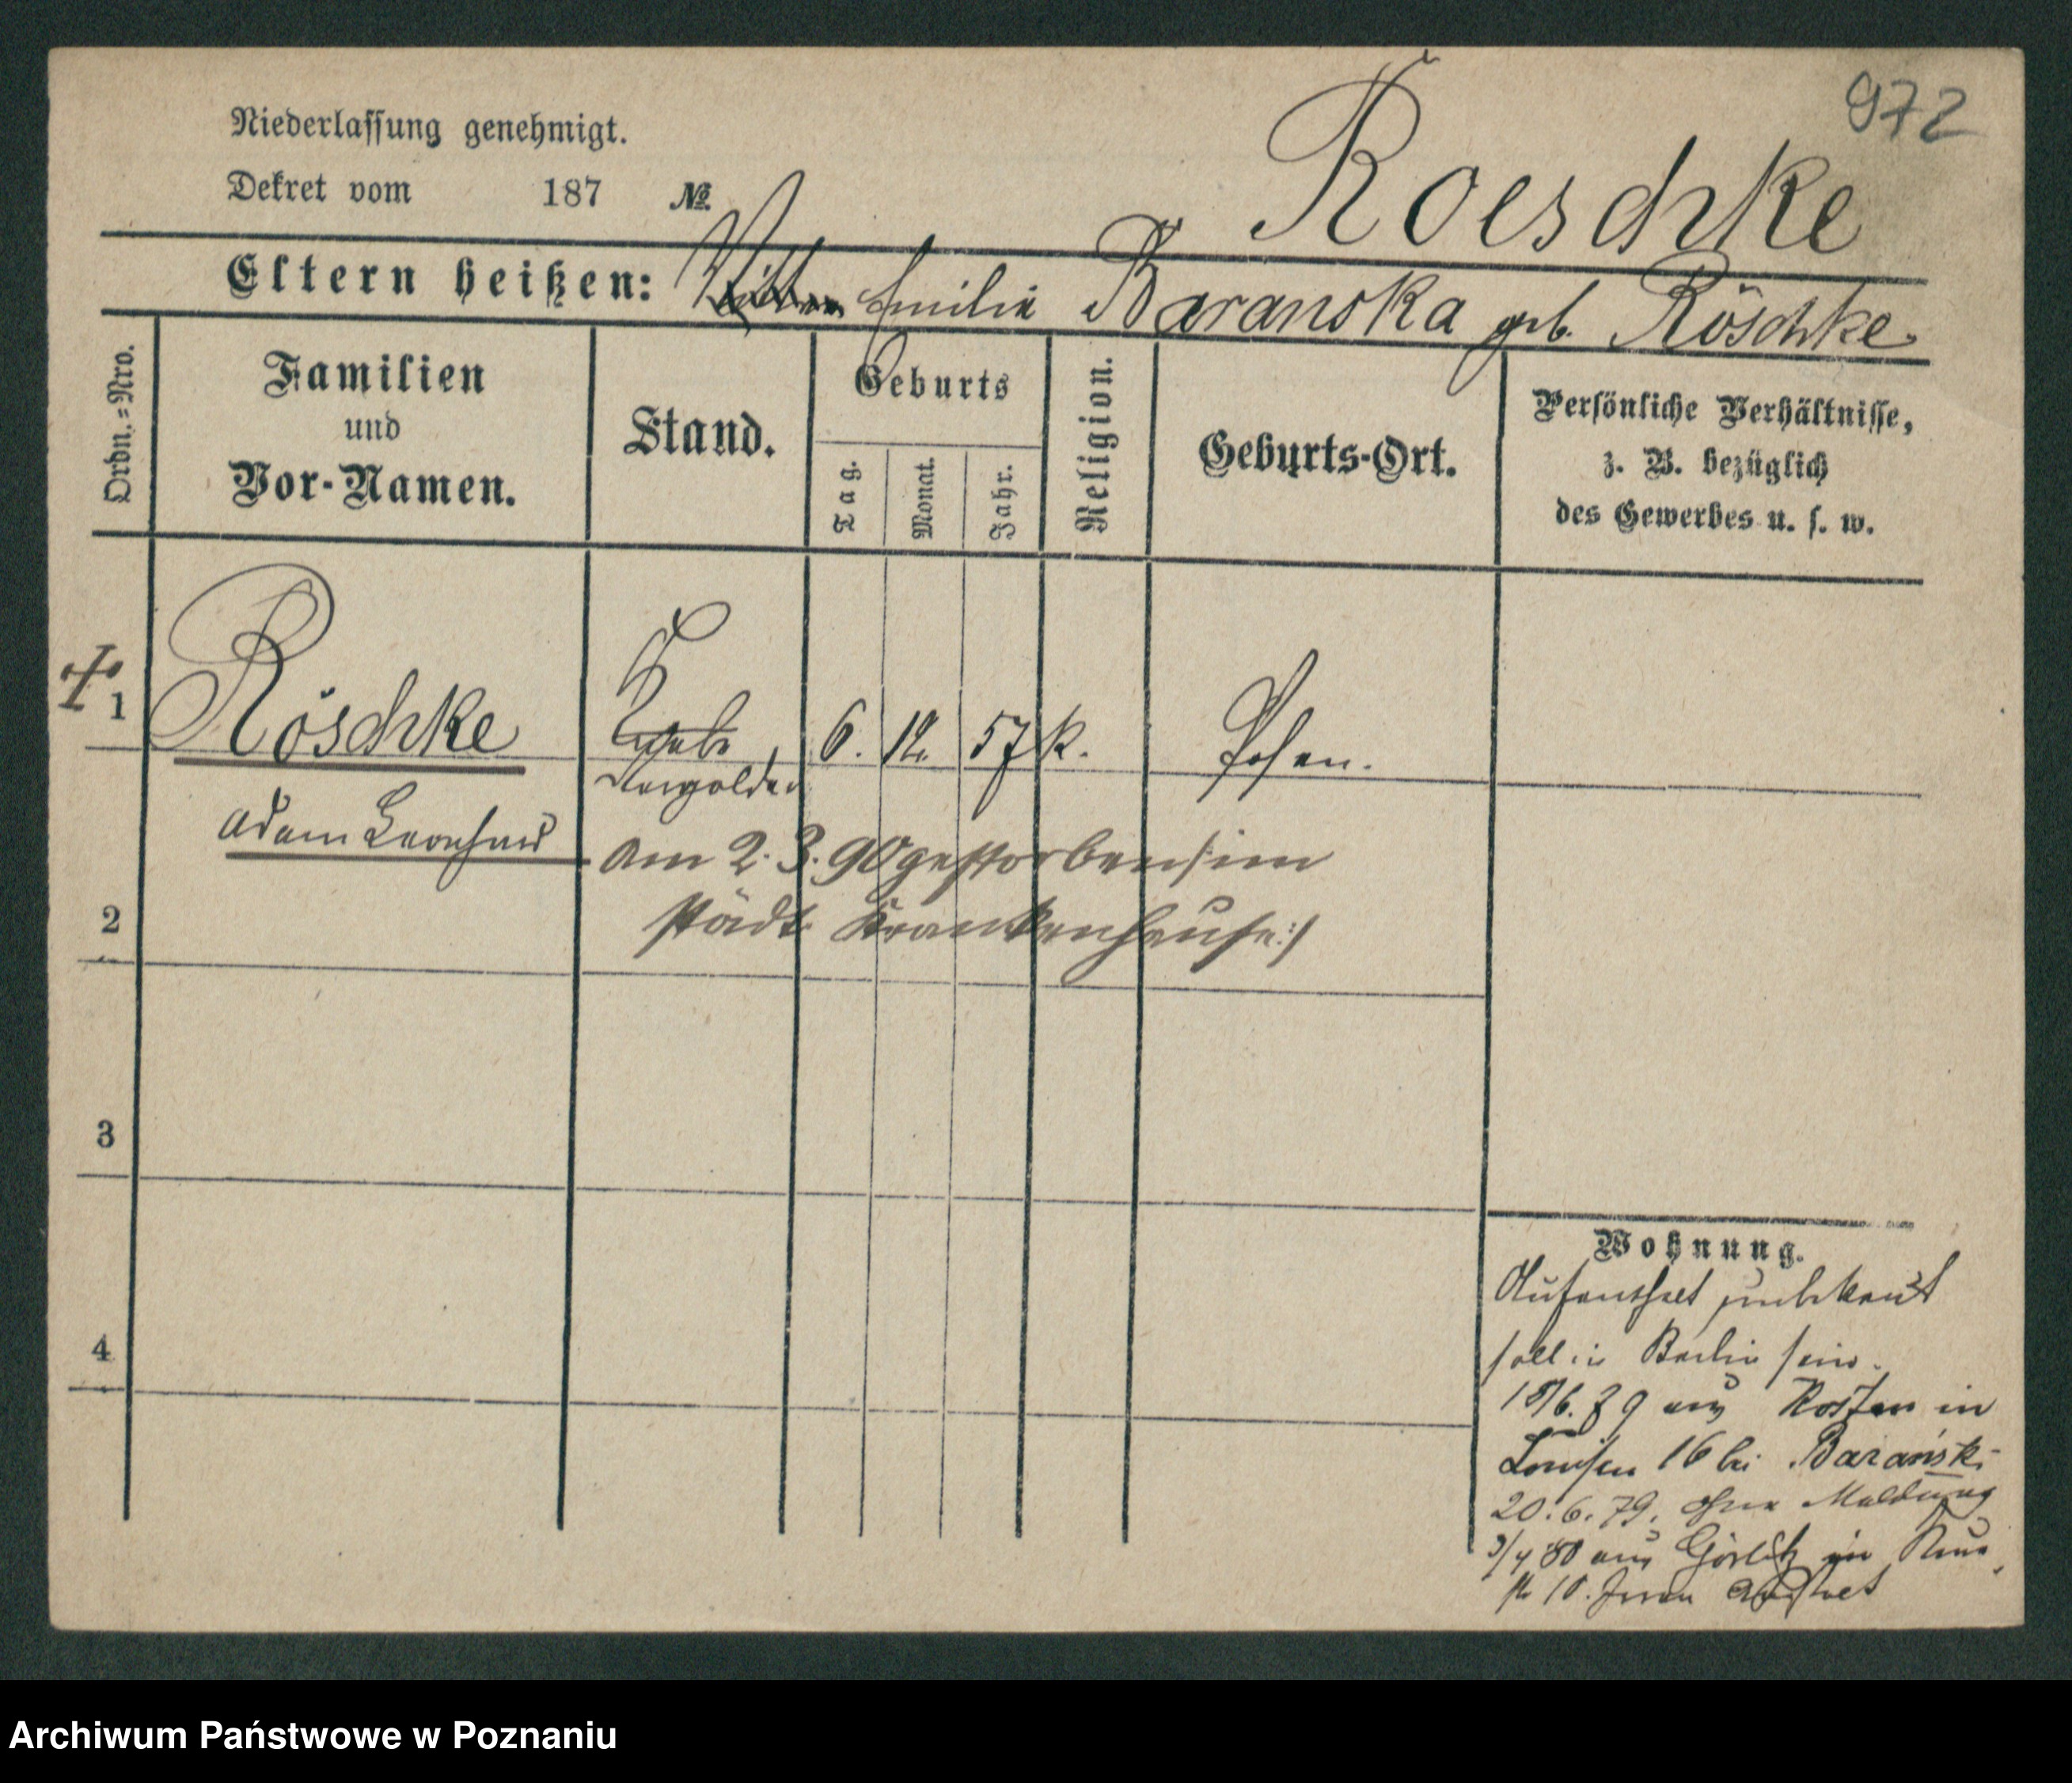 972
Niederlassung genehmigt.
Roeschke
Dekret vom 187 №
Eltern heißen: Emilie Baranska geb. Röschke
Ordn.=Nro.
Familien und Vor-Namen.
Stand.
Geburts
Tag.
Monat.
Jahr.
Religion.
Geburts-Ort.
Persönliche Verhältnisse,
z. B. bezüglich
des Gewerbes u. s. w.
1 Röschke 6. 12. 57 k. Posen.
Vergolder
Adam Leonhard
am 2. 3. 90 gestorben /: im
städt. Krankenhause :/
2
3
4
Wohnung.
Aufenthalt unbekannt
soll in Berlin sein.
aus Kosten in
Louisen 16 bei Barański
20. 6. 79. ohne Meldung
aus Görlitz in
10.
Archiwum Państwowe w Poznaniu